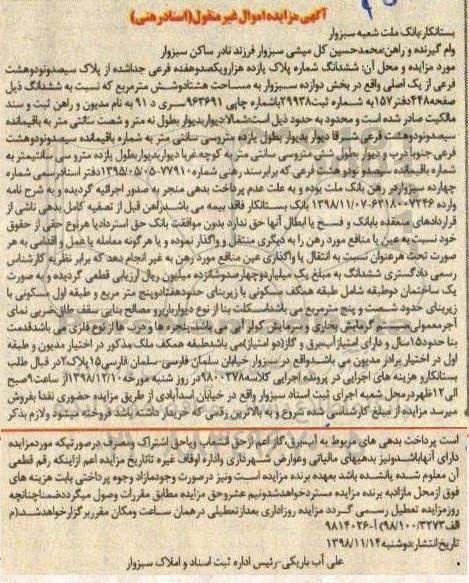 آگهی مزایده اموال غیر منقول (اسناد رهنی)
بستانکار:بانک ملت شعبه سبزوار
وام گیرنده و راهن:محمدحسین کل میشی سبزوار فرزند نادر ساکن سبزوار
مورد مزایده و محل آن: ششدانگ شماره پلاک یازده هزارویکصدوهفده فرعی جداشده از پلاک سیصدونودوهشت
فرعی از یک اصلی واقع در بخش دوازده سبزوار به مساحت هشتادوشش مترمربع که نسبت به ششدانگ ذیل
صفحه۴۴۸دفتر۱۵۷به شماره ثبت۲۹۹۳۸باشماره چاپی ۹۶۳۶۹۱سری د ۹۱ به نام مدیون و راهن ثبت و سند
مالکیت صادر شده است و محدود به حدود ذیل است:شمالا:دیواربدیوار بطول نه متر و شصت سانتی متر به باقیمانده
سیصدونودوهشت فرعی شرقا دیوار بدیوار بطول یازده متروسی سانتی متر به شماره باقیمانده سیصدونودوهشت
فرعی جنوبا درب و دیوار بطول شش متروسی سانتی متر به کوچه غربا دیواربدیواربطول یازده مترو سی سانتیمتر به
شماره باقیمانده سیصدو نودو هشت فرعی که برابر سند رهنی شماره ۷۷۹۱۰-۱۳۹۵/۰۵/۰۵دفتر اسنادرسمی شماره
چهارده سبزواردر رهن بانک ملت بوده و به علت عدم پرداخت بدهی منجر به صدور اجرائیه گردیده و به شرح نامه
وارده ۶۲۱۸۰۰۷۲۴۶-۱۳۹۸/۱۱/۰۷ بانک بستانکار فاقد بیمه می باشد.راهن قبل از تصفیه کامل بدهی ناشی از
قراردادهای منعقده بابانک و فسخ یا ابطال آنها حق ندارد بدون موافقت بانک حق استردادیا هرنوع حقی از حقوق
خود نسبت به عین یا منافع مورد رهن را به دیگری منتقل و واگذار نموده و یا هرگونه معامله یا عمل و اقدامی به هر
صورت تحت هرعنوان نسبت به انتقال یا واگذاری عین منافع مورد رهن به غیر انجام دهد که برابر نظریه کارشناس
رسمی دادگستری ششدانگ به مبلغ یک میلیاردوچهارصدوشانزده میلیون ریال ارزیابی قطعی گردیده و به صورت
یک ساختمان دوطبقه شامل طبقه همکف مسکونی با زیربنای حدودهفتادوپنج متر مربع و طبقه اول مسکونی با
زیربنای حدود شصت و پنج مترمربع می باشداسکلت بنا از نوع دیوارباربرو مصالح بنایی سقف طاق ضربی نمای
آجرمعمولی،سیستم گرمایش بخاری و سرمایش کولر آبی می باشد،پنجره ها و درب ها از نوع فلزی می باشدقدمت
بنا حدود۱۵سال و دارای امتیازآب،برق و گاز(دو امتیاز)می باشدطبقه همکف ملک مذکور در اختیار مدیون و طبقه
اول در اختیار برادر مدیون می باشدوواقع در سبزوار خیابان سلمان فارسی-سلمان فارسی۱۵پلاک۲در قبال طلب
بستانکارو هزینه های اجرایی در پرونده اجرایی کلاسه۹۸۰۰۲۷۸در روز شنبه مورخه۱۳۹۸/۱۲/۱۰از ساعت۹صبح
الی۱۲ظهردرمحل شعبه اجرای ثبت اسناد سبزوار واقع در خیابان اسدآبادی از طریق مزایده حضوری نقدا بفروش
میرسد مزایده از مبلغ کارشناسی شده شروع و به بالاترین رقمی که خریدار داشته باشد فروخته میشود ولازم بذکر
است پرداخت بدهی های مربوط به آب،برق،گاز اعم ازحق انشعاب ویاحق اشتراک ومصرف درصورتیکه موردمزایده
دارای آنهاباشدونیز بدهیهای مالیاتی وعوارض شهرداری واداره اوقاف غیره تاتاریخ مزایده اعم ازاینکه رقم قطعی
آن معلوم شده یانشده باشد بعهده برنده مزایده است ونیز درصورت وجودمازاد وجوه پرداختی بابت هزینه های
فوق ازمحل مازادبه برنده مزایده مستردخواهدشدونیم عشروحق مزایده مطابق مقررات وصول میگردد.ضمناچنانچه
روزمزایده تعطیل رسمی گردد مزایده روزاداری بعدازتعطیلی درهمان ساعت ومکان مقرربرگزارخواهدشد.(م
الف۹۸/۱۰۰/۳۲۷۳)آ-۹۸۱۴۰۲۶
تاریخ انتشار:دوشنبه۱۳۹۸/۱۱/۱۴
علی آب باریکی-رئیس اداره ثبت اسناد و املاک سبزوار